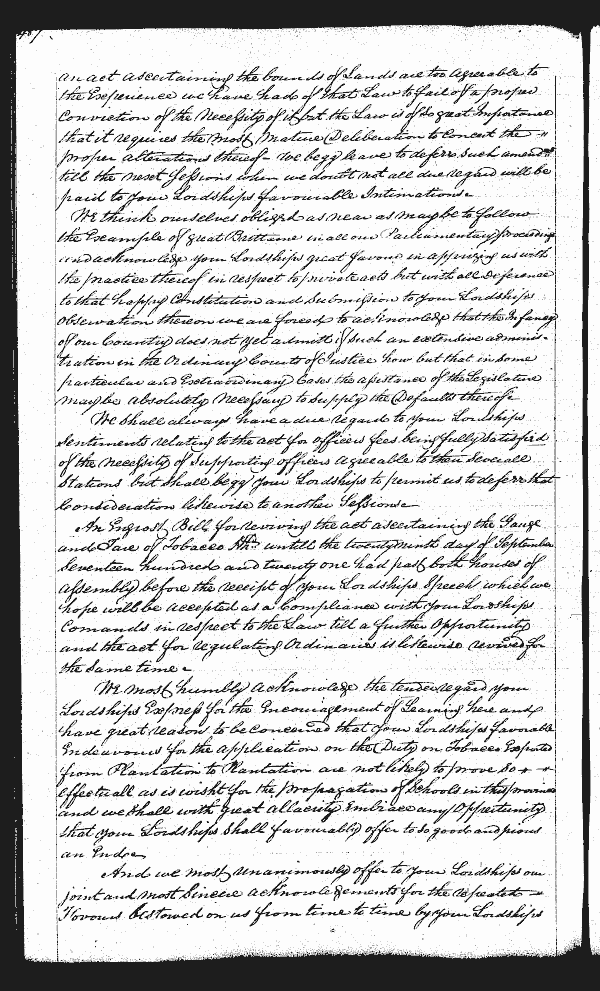 an act ascertaining the bounds of Lands are too agreeable to
the Experience we have had of that Law to fail of a proper
Conviction of the Necessity of it but the Law is of so great Importance
that it requires the most Mature Deliberation to concert the
proper alterations thereof we begg leave to deferr such amendmts
till the next Sessions when we doubt not all due regard will be
paid to your Lordships favourable Intimations
We think ourselves obliged as near as may be to follow
the Example of great Brittaine in all our Parliamentary proceedings
and acknowledge your Lordships great favour in apprizing us with
the practice thereof in respect to private acts but with all Deference
to that happy Constitution and Submission to your Lordships
Observation thereon we are forced to acknowledge that the Infancy
of our Country does not yet admitt of such an extensive adminis
tration in the Ordinary Courts of Justice how but that in some
particular and Extraordinary Cases the assistance of the Legislature
may be absolutely Necessary to Supply the Defaults thereof
We Shall always have a due regard to your Lordships
Sentiments relating to the act for officers fees being fully Satisfied
of the necessity of Supporting officers agreeable to their Severall
Stations but shall begg your Lordships to permit us to deferr that
Consideration likewise to another Sessions
An Engrost Bill for reviving the act ascertaining the Gauge
and Tare of Tobacco Hhds untill the twenty ninth day of September
Seventeen hundred and twenty one had past both houses of
assembly before the receipt of your Lordships Speech which we
hope will be accepted as a Compliance with your Lordships
Comands in respect to the Law till a further Opportunity
and the act for regulating Ordinaries is likewise revived for
the Same time
We most humbly Acknowledge the tender regard your
Lordships Express for the Encouragement of Learning here and
have great reason to be concerned that your Lordships favorable
Endeavours for the application on the Duty on Tobacco Exported
from Plantation to Plantation are not likely to prove So
effectuall as is wisht for the propagation of Schools in this province
and we Shall with great allacrity Embrace any Oppertunity
that your Lordships Shall favourably offer to so good and pious
an End
And we most unanimously offer to your Lordships our
joint and most Sincere acknowledgements for the repeated
Favours bestowed on us from time to time by your Lordships